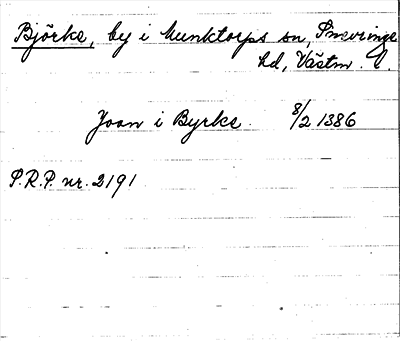 Björke, by i Munktorps sn, Snevringe
hd, Västm. l.
Joon i Byrke 8/2 1386
S.R.P. nr. 2191